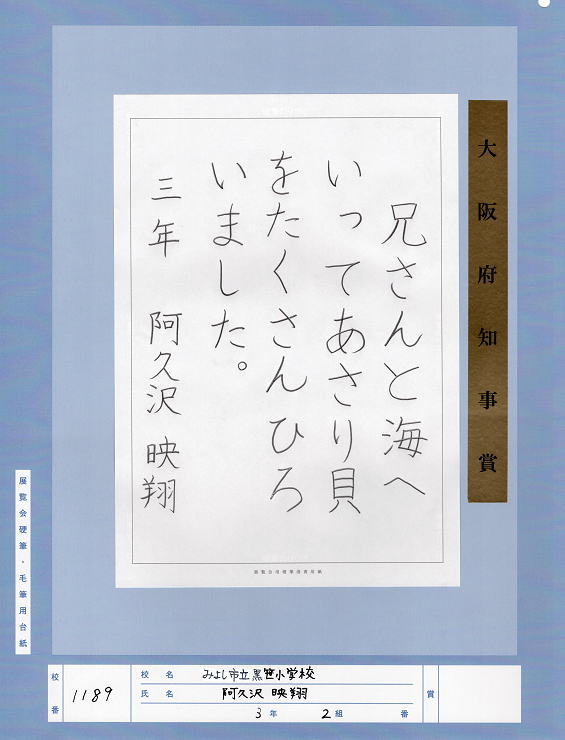 大阪府知事賞
兄さんと海へ
いってあさり貝
をたくさんひろ
いました。
三年 阿久沢 映翔
展覧会用硬筆清書用紙
展覧会硬筆・毛筆用台紙
校番 1189
校名 みよし市立黒笹小学校
氏名 阿久沢 映翔
3年 2組 番
賞